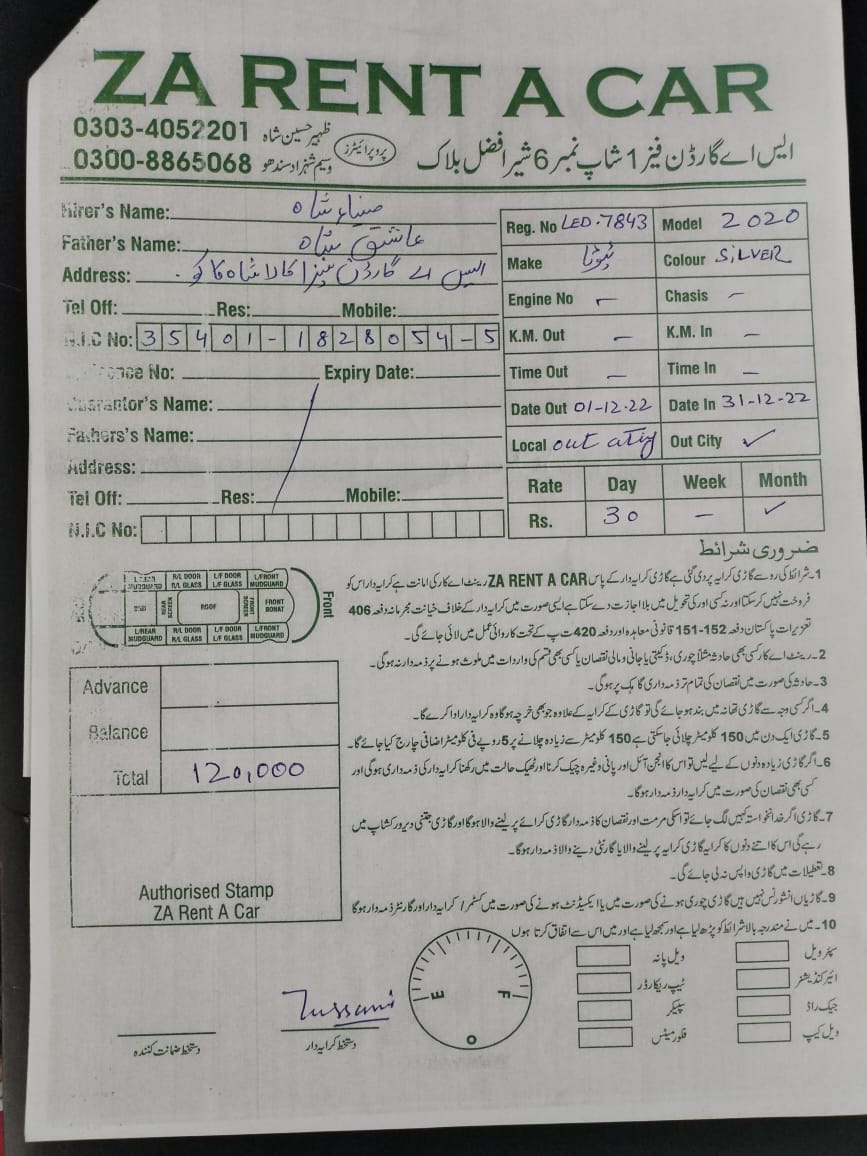 ZA RENT A CAR
0303-4052201 ظہیر حسین شاہ
0300-8865068 وسیم شہزاد سندھو
پروپرائیٹرز
ایس اے گارڈن فیز 1 شاپ نمبر 6 شیر افضل بلاک
Hirer's Name: ضیاء شاہ
Father's Name: عاشق شاہ
Address: ایس اے گارڈن کالا شاہ کاکو
Tel Off: Res: Mobile:
N.I.C No: 35401-1828054-5
Expiry Date:
Guarantor's Name:
Fathers's Name:
Address:
Tel Off: Res: Mobile:
N.I.C No:
Reg. No LED-7843 Model 2020
Make ٹیوٹا Colour SiLVER
Engine No – Chasis –
K.M. Out – K.M. In –
Time Out – Time In –
Date Out 01-12-22 Date In 31-12-22
Local out Out City ✓
Rate Day Week Month
Rs. 30 – ✓
ضروری شرائط
1۔ شرائط کی رو سے گاڑی کرایہ پر دی گئی ہے گاڑی کرایہ دار کے پاس ZA RENT A CAR رینٹ اے کار کی امانت ہے کرایہ دار اس کو
فروخت نہیں کر سکتا اور نہ کسی اور کی تحویل میں بلا اجازت دے سکتا ہے ایسی صورت میں کرایہ دار کے خلاف خیانت مجرمانہ دفعہ 406
تعزیرات پاکستان دفعہ 152-151 قانونی معاہدہ اور دفعہ 420 ت پ کے تحت کاروائی عمل میں لائی جائے گی۔
2۔ رینٹ اے کار کسی بھی حادثہ مثلاً چوری، ڈکیتی یا جانی و مالی نقصان یا کسی بھی قسم کی واردات میں ملوث ہونے پر ذمہ دار نہ ہوگی۔
3۔ حادثہ کی صورت میں نقصان کی تمام تر ذمہ داری گاہک پر ہوگی۔
4۔ اگر کسی وجہ سے گاڑی تھانہ میں بند ہو جائے گی تو گاڑی کے کرایہ کے علاوہ جو بھی خرچہ ہوگا وہ کرایہ دار ادا کرے گا۔
5۔ گاڑی ایک دن میں 150 کلومیٹر چلائی جا سکتی ہے 150 کلومیٹر سے زیادہ چلانے پر 5 روپے فی کلومیٹر اضافی چارج کیا جائے گا۔
6۔ اگر گاڑی زیادہ دنوں کے لیے لیں تو اس کا انجن آئل اور پانی وغیرہ چیک کرنا اور ٹھیک حالت میں رکھنا کرایہ دار کی ذمہ داری ہوگی اور
کسی بھی نقصان کی صورت میں کرایہ دار ذمہ دار ہوگا۔
7۔ گاڑی اگر خدانخواستہ کہیں لگ جائے تو اسکی مرمت اور نقصان کا ذمہ دار گاڑی کرائے پر لینے والا ہوگا اور گاڑی جتنی دیر ورکشاپ میں
رہے گی اس کا اتنے دنوں کا کرایہ گاڑی کرایہ پر لینے والا یا گارنٹی دینے والا ذمہ دار ہوگا۔
8۔ تعطیلات میں گاڑی واپس نہ لی جائے گی۔
9۔ گاڑیاں انشورنس نہیں ہیں گاڑی چوری ہونے کی صورت میں یا ایکسیڈنٹ ہونے کی صورت میں کسٹمر / کرایہ دار اور گارنٹر ذمہ دار ہوگا
10۔ میں نے مندرجہ بالا شرائط کو پڑھ لیا ہے اور سمجھ لیا ہے اور میں اس سے اتفاق کرتا ہوں
R/L DOOR L/F DOOR L/FRONT
MUDGUARD R/L GLASS L/F GLASS MUDGUARD
REAR SCREEN ROOF FRONT SCREEN FRONT BONAT
L/REAR R/L DOOR L/F DOOR L/FRONT
MUDGUARD R/L GLASS L/F GLASS MUDGUARD
Front
Advance
Balance
Total 120,000
Authorised Stamp
ZA Rent A Car
سپئر ویل ویل پانہ
ائیرکنڈیشنر ٹیپ ریکارڈر
جیک راڈ سپیکر
ویل کیپ فلور میٹس
E F
O
دستخط کرایہ دار
دستخط ضمانت کنندہ